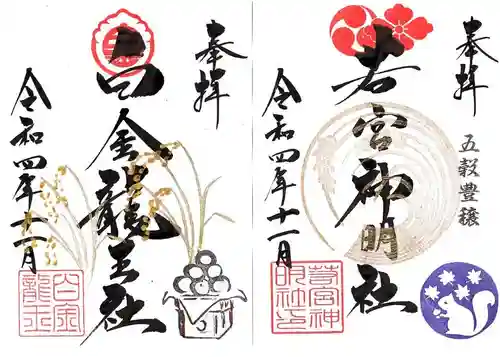 奉拝
白金龍王社
令和四年十一月
白金
龍王
奉拝
五穀豊穣
若宮神明社
令和四年十一月
若宮神
明社